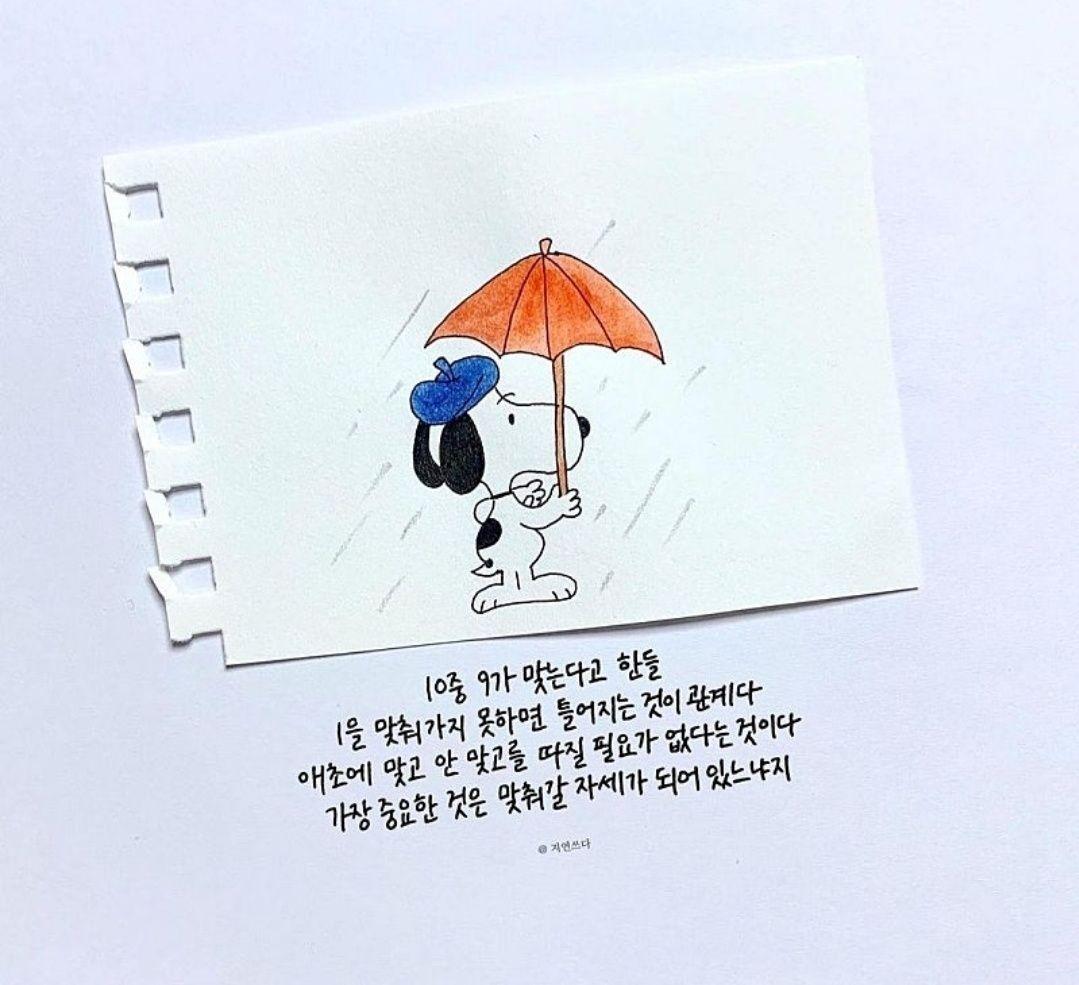 10중 9가 맞는다고 한들
1을 맞춰가지 못하면 틀어지는 것이 관계다
애초에 맞고 안 맞고를 따질 필요가 없다는 것이다
가장 중요한 것은 맞춰갈 자세가 되어 있느냐지
@ 지연쓰다